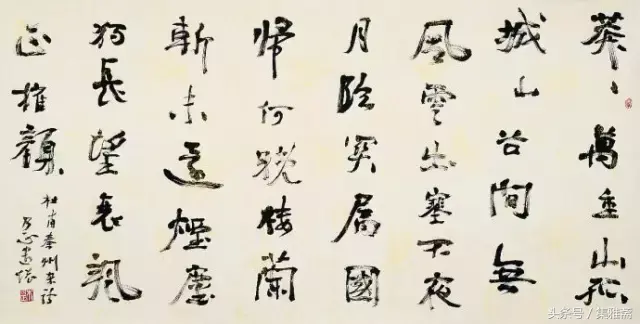 莽〻萬重山孤
城山谷間無
風雲出塞不夜
月臨關屬國
歸何晚樓蘭
斬未還煙塵
独長望衰颯
正摧顏
杜甫秦州雜詩
头条号 / 集雅斋